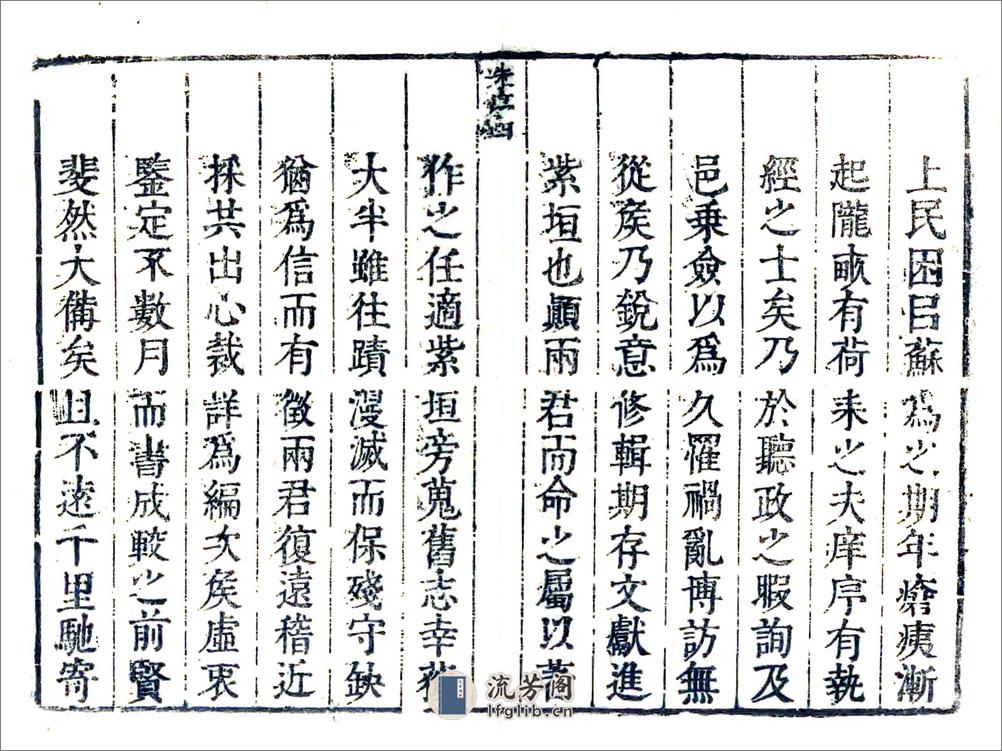 上民困呂蘇爲之期年瘡痍漸
起隴畝有荷耒之夫庠序有執
經之士矣乃於聽政之暇詢及
邑乗僉以爲久罹禍亂博訪無
從矦乃銳意修輯期存文獻進
紫垣也顓兩君而命之屬以著
作之任適紫垣旁蒐舊志幸
大半雖往蹟漫滅而保殘守缺
猶爲信而有徵兩君復遠稽近
採共出心裁詳爲編次矦虛衷
鑒定不數月而書成較之前賢
斐然大備矣且不遠千里馳寄
流芳阁
lfglib.cn